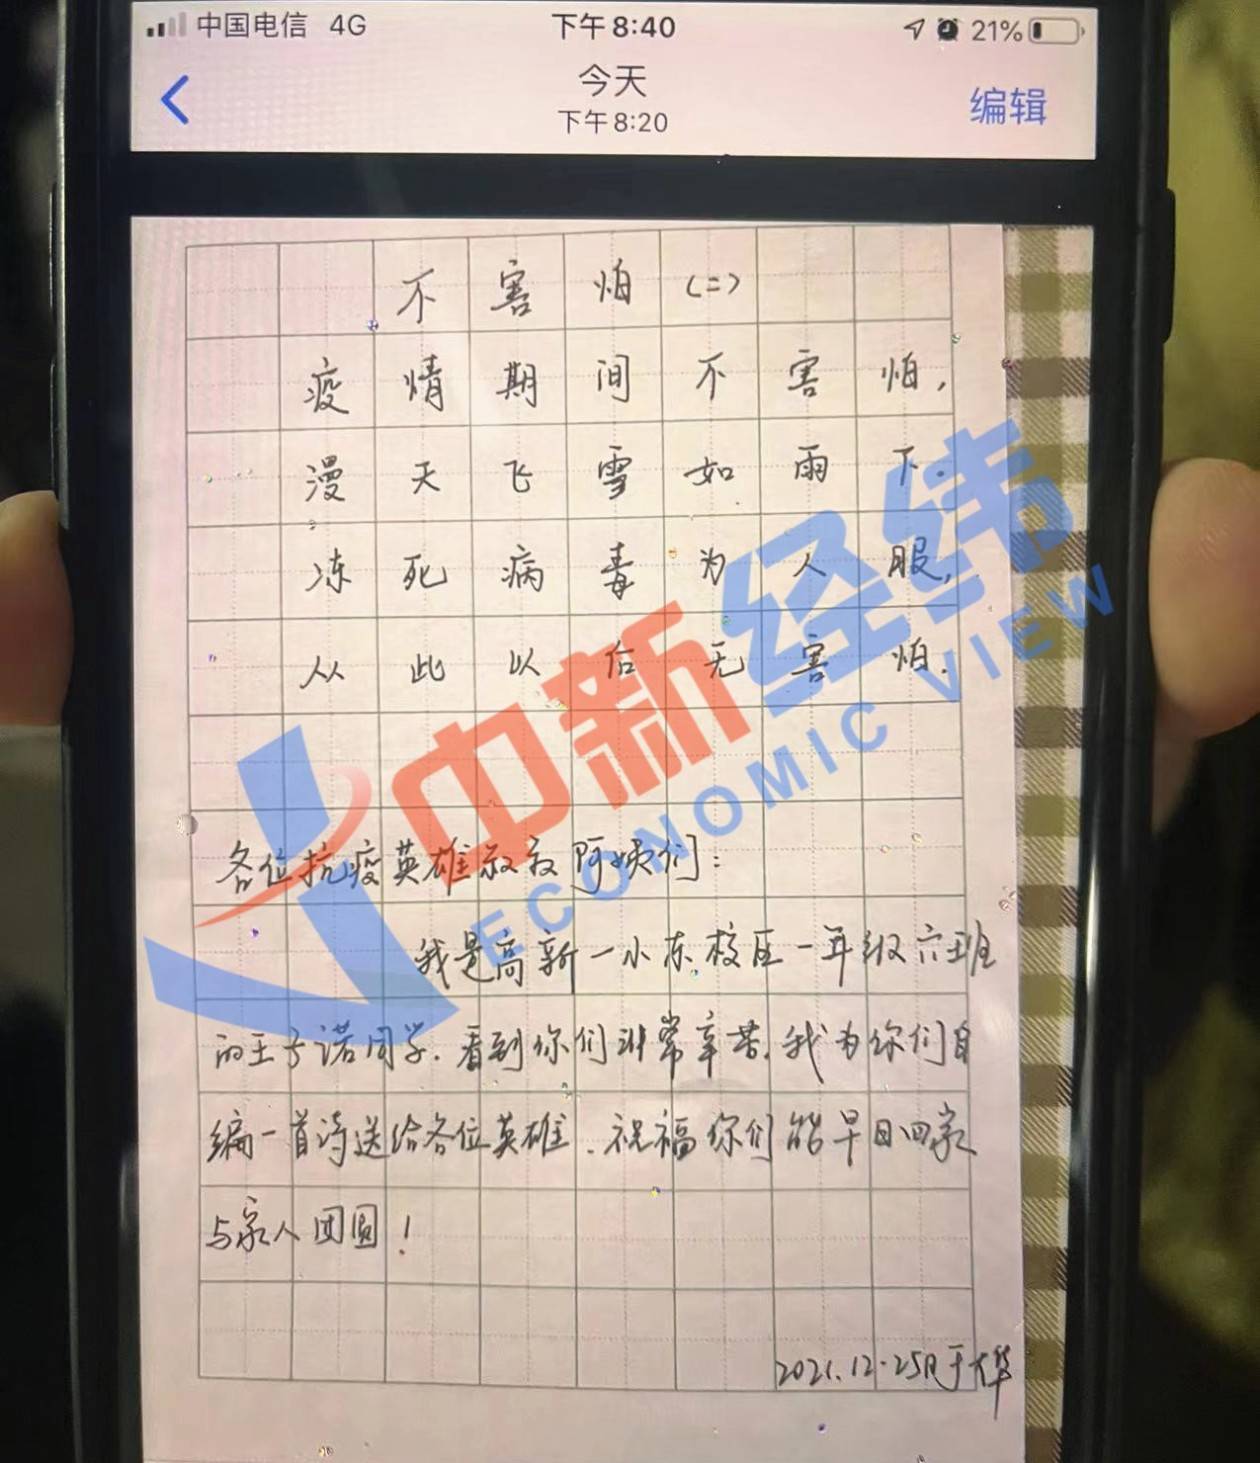 中国电信 4G 下午8:40 21%
今天
下午8:20
编辑
不害怕(二)
疫情期间不害怕,
漫天飞雪如雨下.
冻死病毒为人服,
从此以后无害怕.
各位抗疫英雄叔叔阿姨们:
我是高新一小东校区一年级六班
的王子诺同学.看到你们非常辛苦.我为你们自
编一首诗送给各位英雄.祝福你们能早日回家
与家人团圆!
2021.12.25日于大华
中新经纬
ECONOMIC VIEW